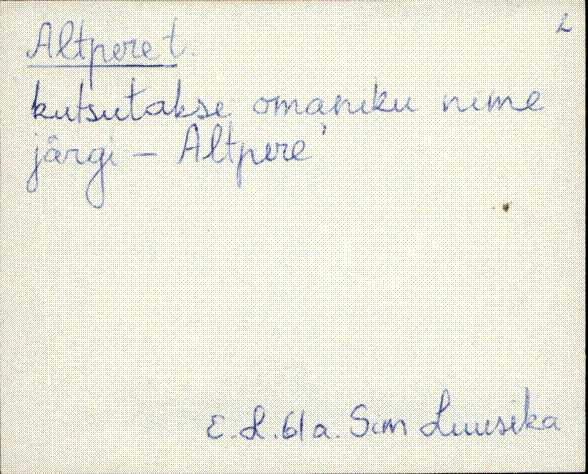 2
Altpere t.
kutsutakse omaniku nime
järgi – Altpere'
E. L. 61 a. Sim Luusika